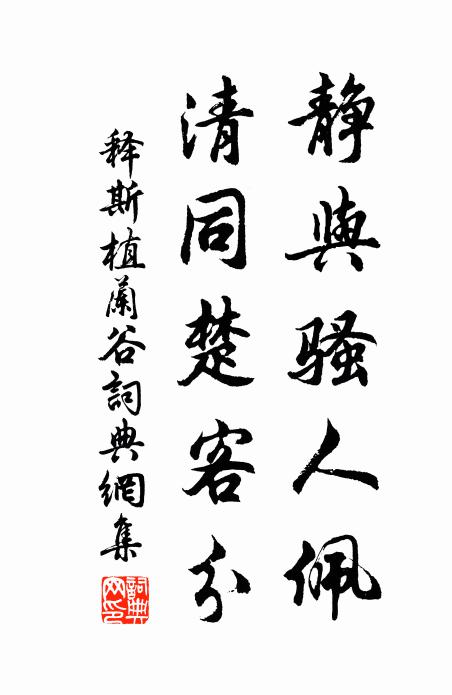 静與骚人佩
清同楚客分
释斯植蘭谷詞典網集
詞典網印